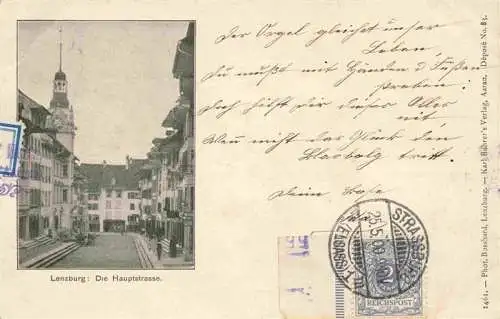 Der Orgel gleichet unser
Leben,
Du mußt mit Händen & Füßen
streben:
Doch hilft dir dieses Alles
nit,
Wenn nicht das Glück den
Blasbalg tritt.
Deine
Lenzburg: Die Hauptstrasse.
1461. — Phot. Bosshard, Lenzburg. — Karl Bührer's Verlag, Aarau. (Dépose No. 83.
STRASSBURG
25.5.00
(ELSASS)
2
REICHSPOST